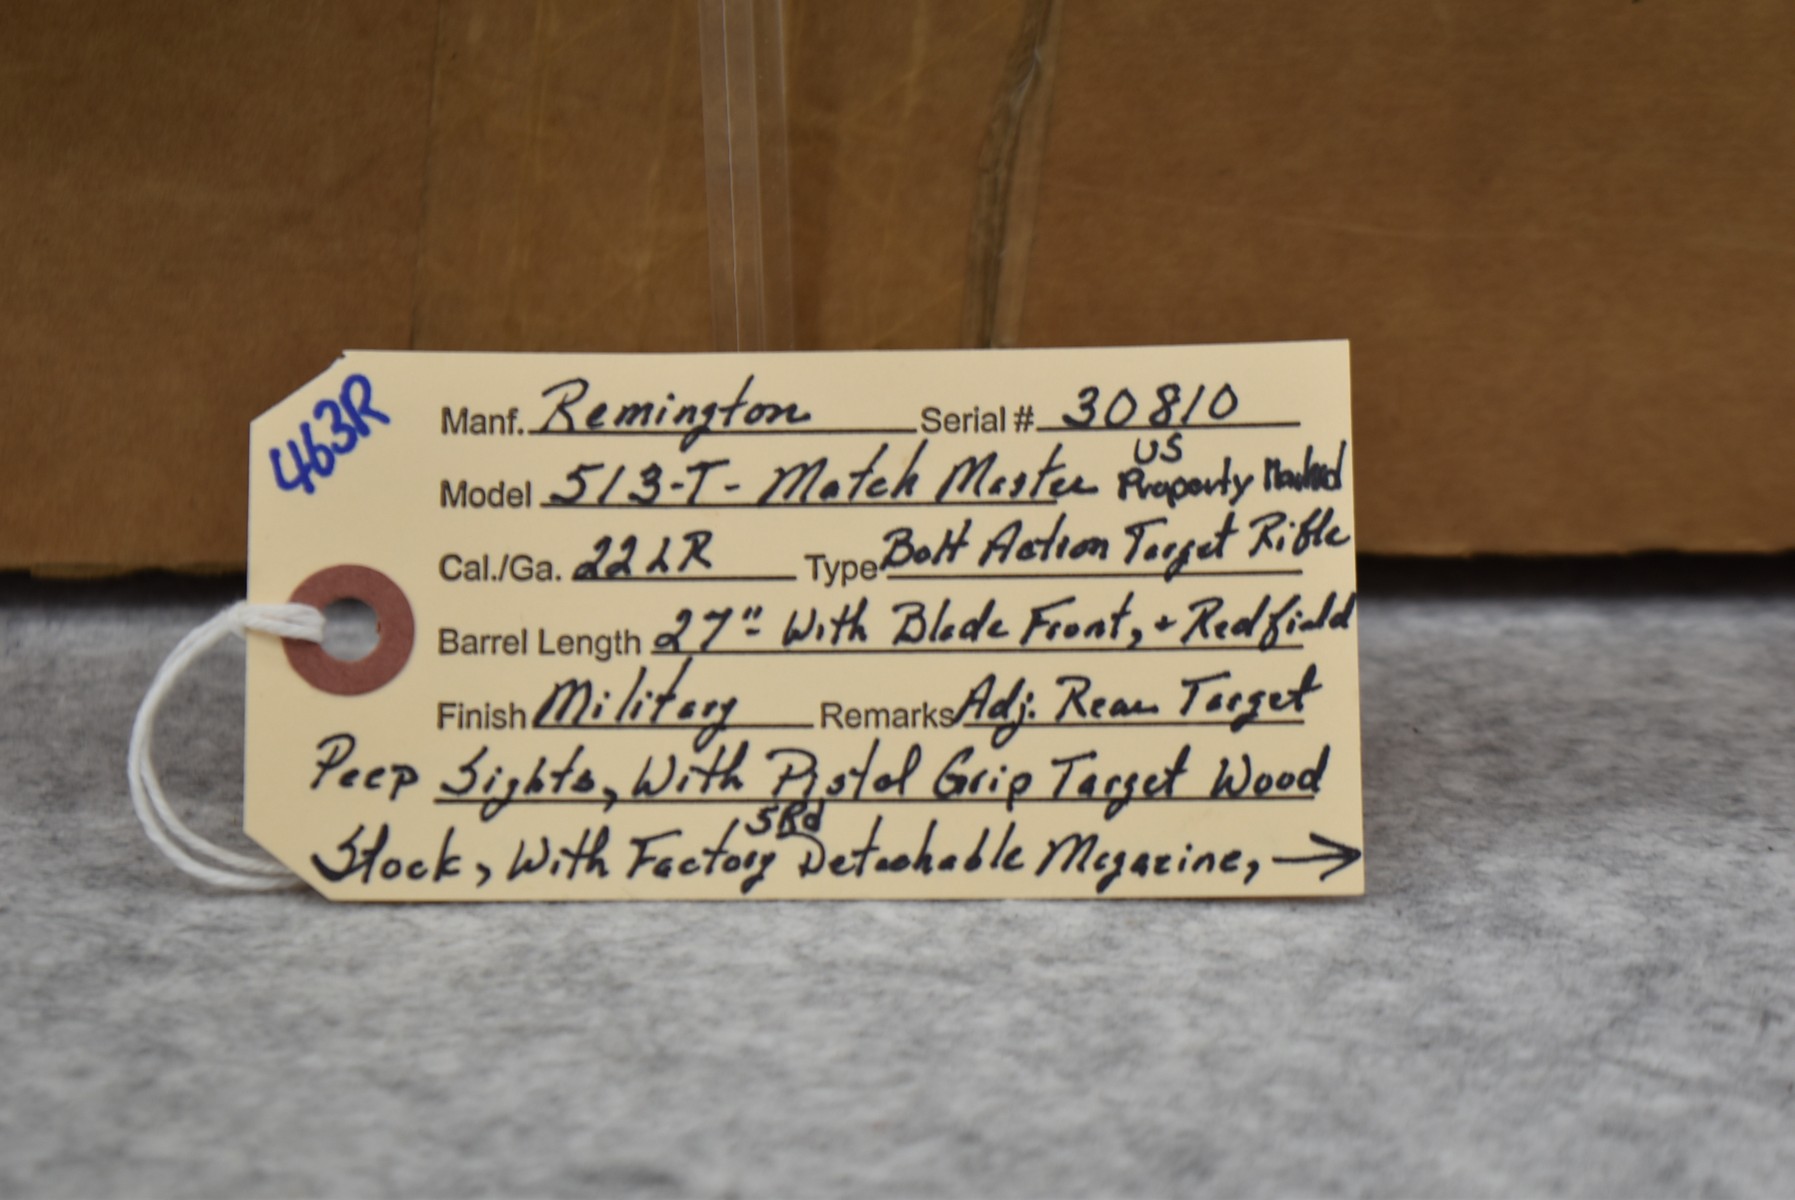 463R
Manf. Remington Serial # 30810
Model 513-T - Match Master US Property Marked
Cal./Ga. 22LR Type Bolt Action Target Rifle
Barrel Length 27" - With Blade Front, + Redfield
Finish Military Remarks Adj. Rear Target
Peep Sights, With Pistol Grip Target Wood
Stock, With Factory 5Rd Detachable Magazine, →